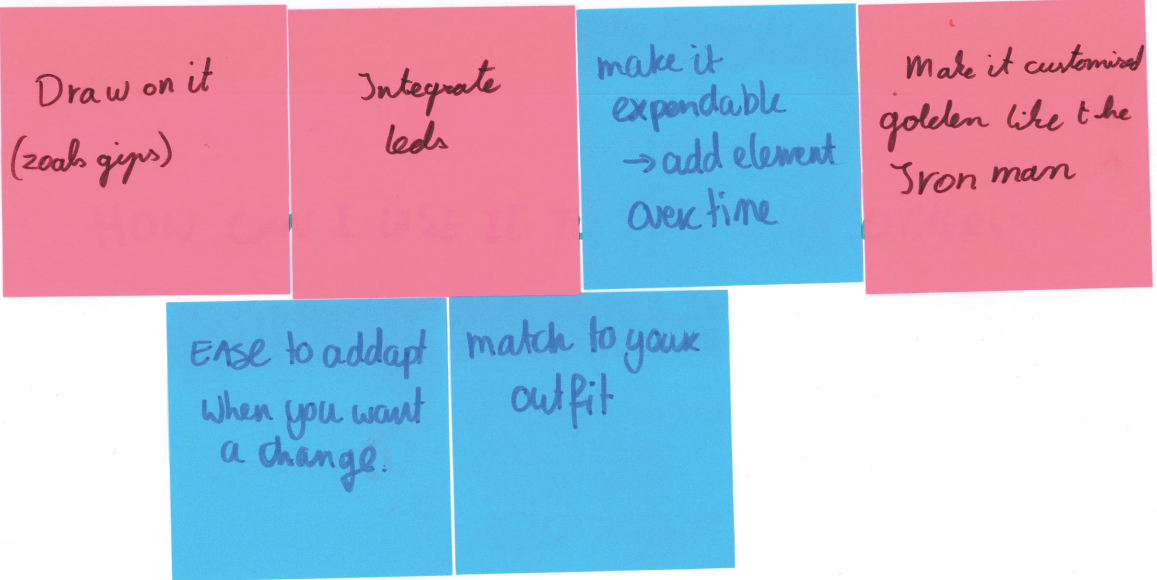 Draw on it
(zoals gips)
Integrate
leds
make it
expendable
→ add element
over time
Make it customised
golden like the
Iron man
EASE to addapt
when you want
a change.
match to your
outfit
HOW CAN I USE IT